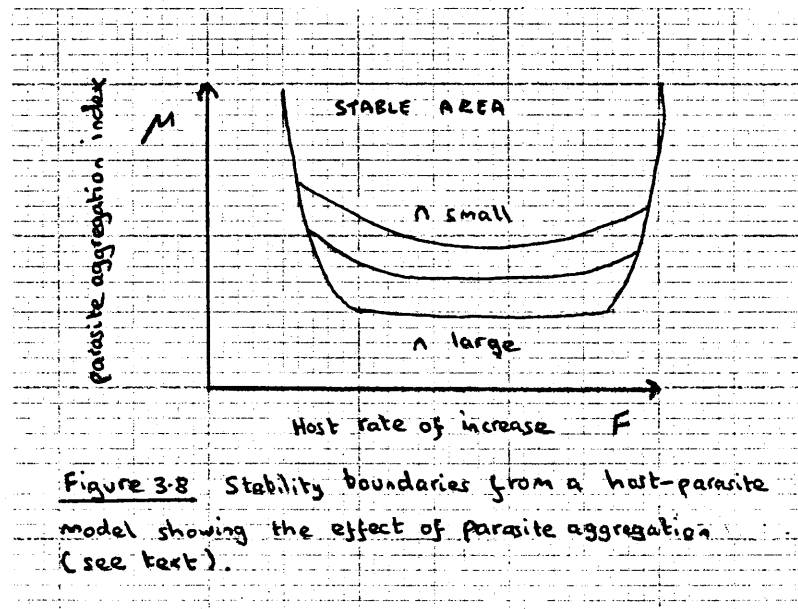 parasite aggregation index
μ
STABLE AREA
n small
n large
Host rate of increase F
Figure 3.8 Stability boundaries from a host-parasite
model showing the effect of parasite aggregation
(see text).